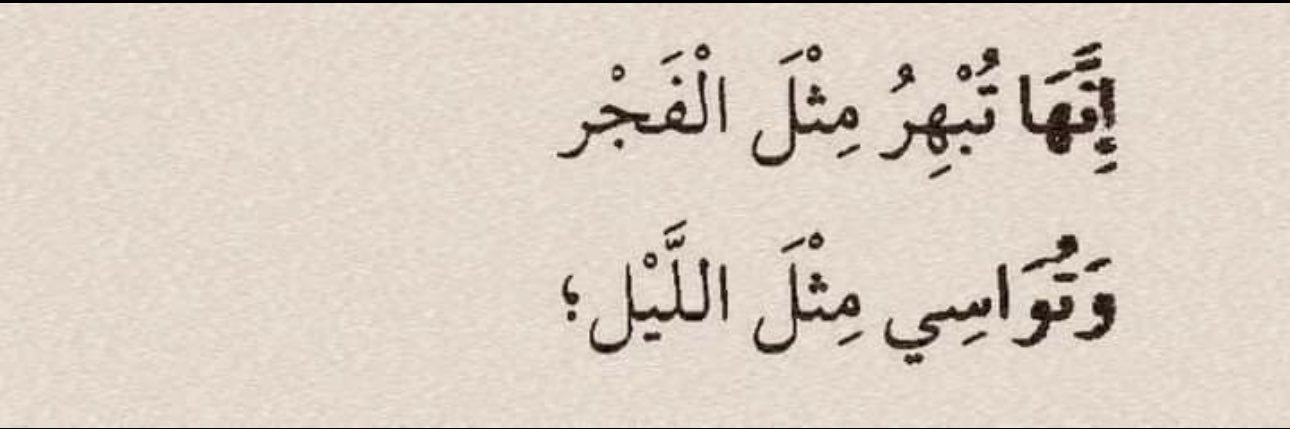 إِنَّهَا تُبْهِرُ مِثْلَ الْفَجْر
وَتُوَاسِي مِثْلَ اللَّيْل؛